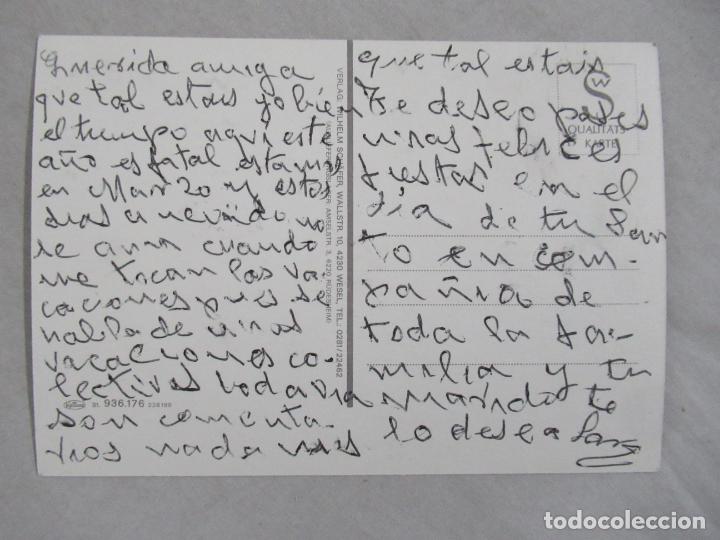 Querida amiga
que tal estais yo bien
el tiempo aqui este
año es fatal estamos
en Marzo y estos
dias a nevado no
se aun cuando
me tocan las va
caciones pues se
habla de unas
vacaciones co-
lectivas todavia
son comenta
rios nada mas
que tal estais
Te deseo pases
unas felices
fiestas en el
dia de tu San
to en com-
pañia de
toda la fa-
milia y tu
marido te
lo desea
VERLAG: WILHELM SCHÄFER, WALLSTR. 10, 4230 WESEL, TEL.: 0281/22462
AMSELSTR. 3, 6220 RÜDESHEIM
W
S
QUALITÄTS
KARTE
31. 936.176
todocoleccion
todocoleccion.net